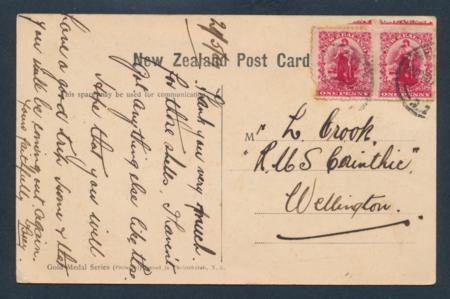 New Zealand Post Card
This space may be used for communication
Thank you very much
for those shells. I haven't
got anything else like these
hope that you will
have a good trip home & that
you will be coming out again.
Yours faithfully
M
L. Crook,
R.M.S Corinthic,
Wellington.
ONE PENNY
ONE PENNY
Gold Medal Series